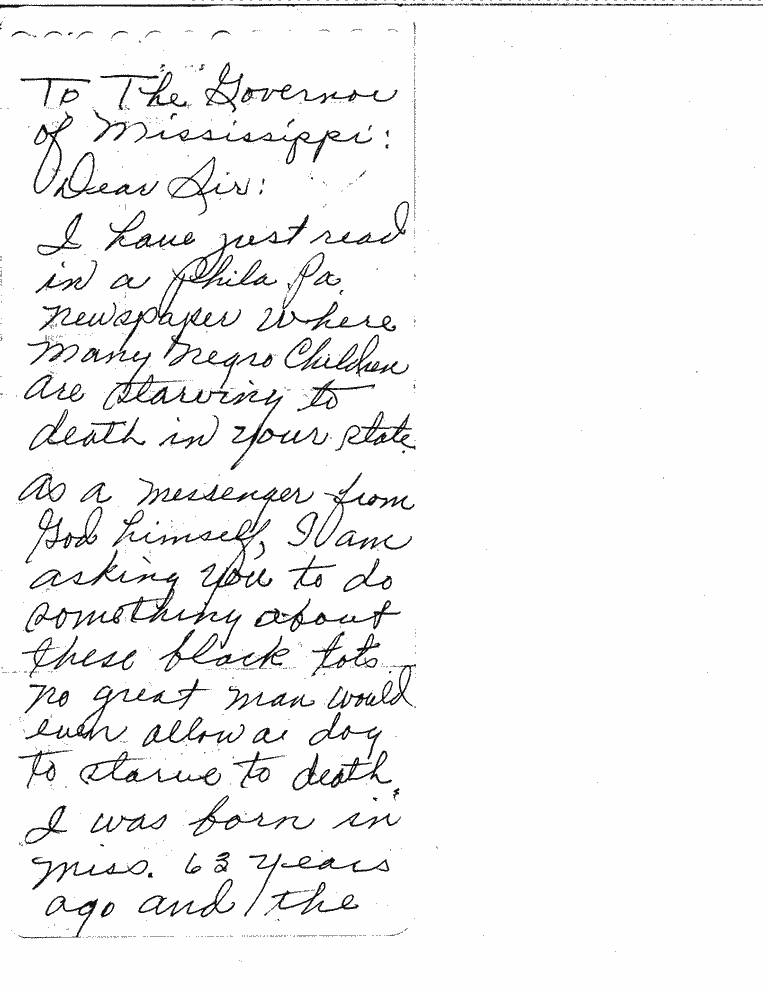 To The Governor
of Mississippi:
Dear Sir:
I have just read
in a Phila Pa.
newspaper where
many Negro Children
are starving to
death in your state.
As a messenger from
God himself, I am
asking you to do
something about
these black tots.
no great man would
even allow a dog
to starve to death.
I was born in
Miss. 63 years
ago and the